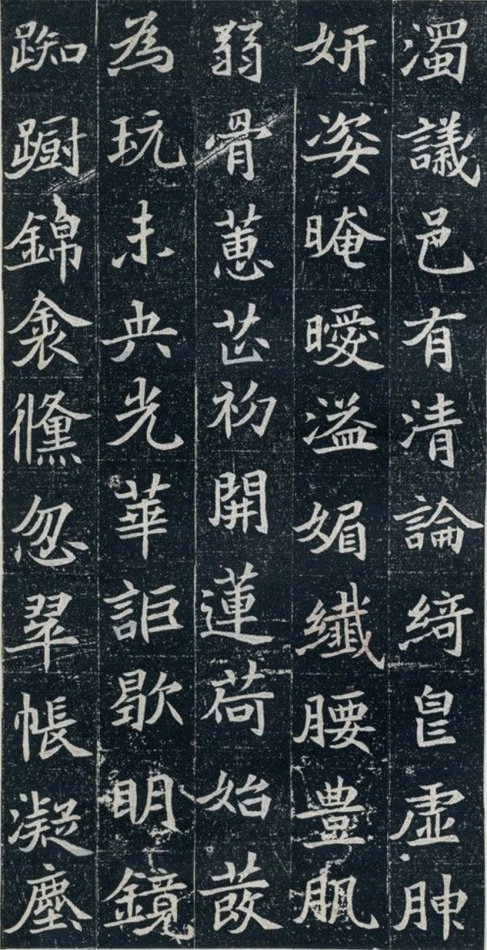 濁議邑有清論綺皃虛
妍姿晻曖溢媚纖腰豊肌
弱骨蕙芷初開蓮荷始
為玩未央光華詎歇明鏡
踟蹰錦衾儵忽翠帳凝塵